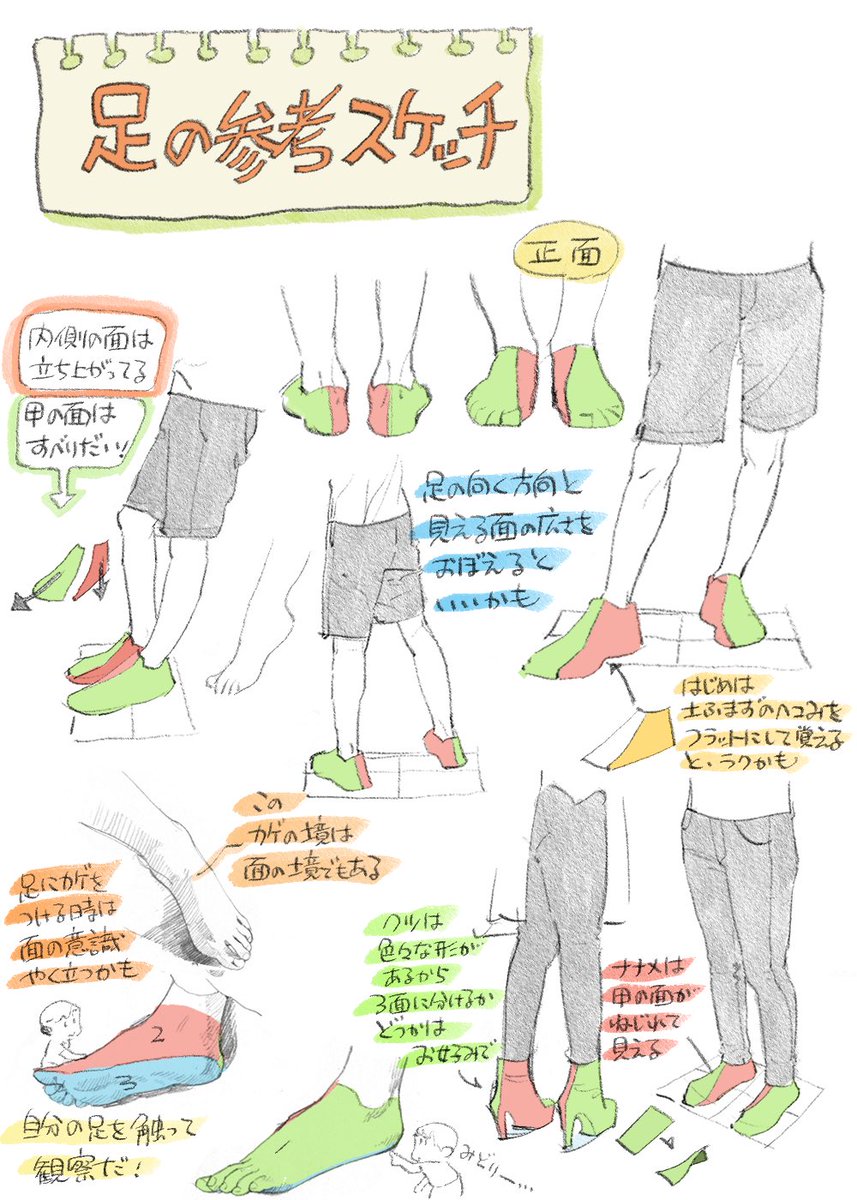 足の参考スケッチ
正面
内側の面は
立ち上がってる
甲の面は
すべりだい!
足の向く方向と
見える面の広さを
おぼえると
いいかも
はじめは
土ふまずのヘコみを
フラットにして覚える
と、ラクかも
この
カゲの境は
面の境でもある
足にカゲを
つける時は
面の意識
やく立つかも
クツは
色々な形が
あるから
3面に分けるか
どうかは
お好みで
ナナメは
甲の面が
ねじれて
見える
2
3
自分の足を触って
観察だ!
みどりー…